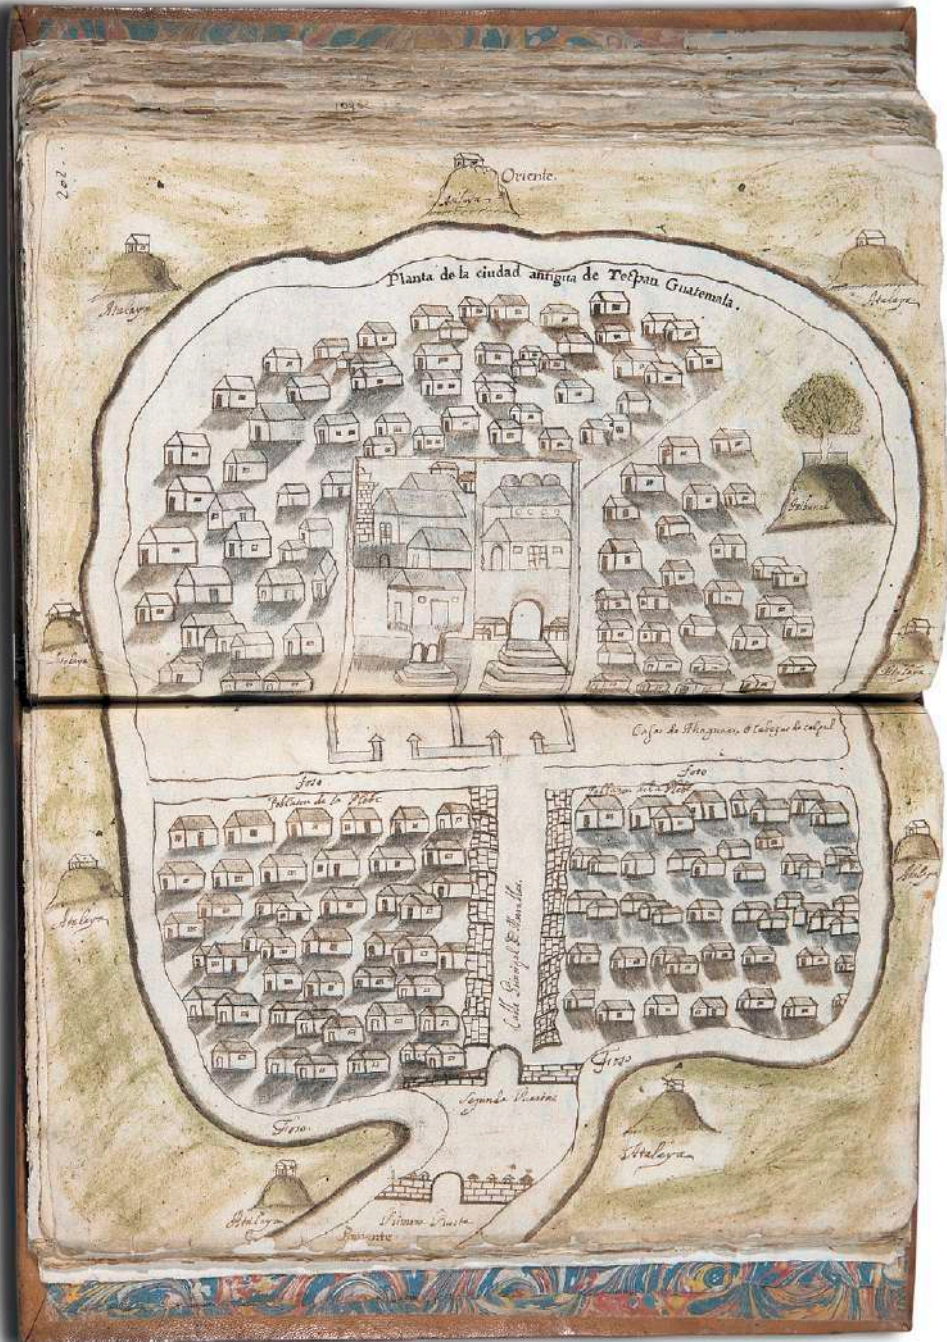 202.
Oriente.
Atalaya
Planta de la ciudad antigua de Tecpan Guatemala.
Atalaya
Atalaya
Tribunal
Atalaya
Atalaya
Casas de Ahaguaes, o Cabezas de calpul
foso
foso
Poblazon de la Plebe
Poblazon de la Plebe
Atalaya
Atalaya
Calle Principal de Murallas.
Foso
Segunda Puerta
Foso.
Atalaya
Atalaya
Primera Puerta
Poniente